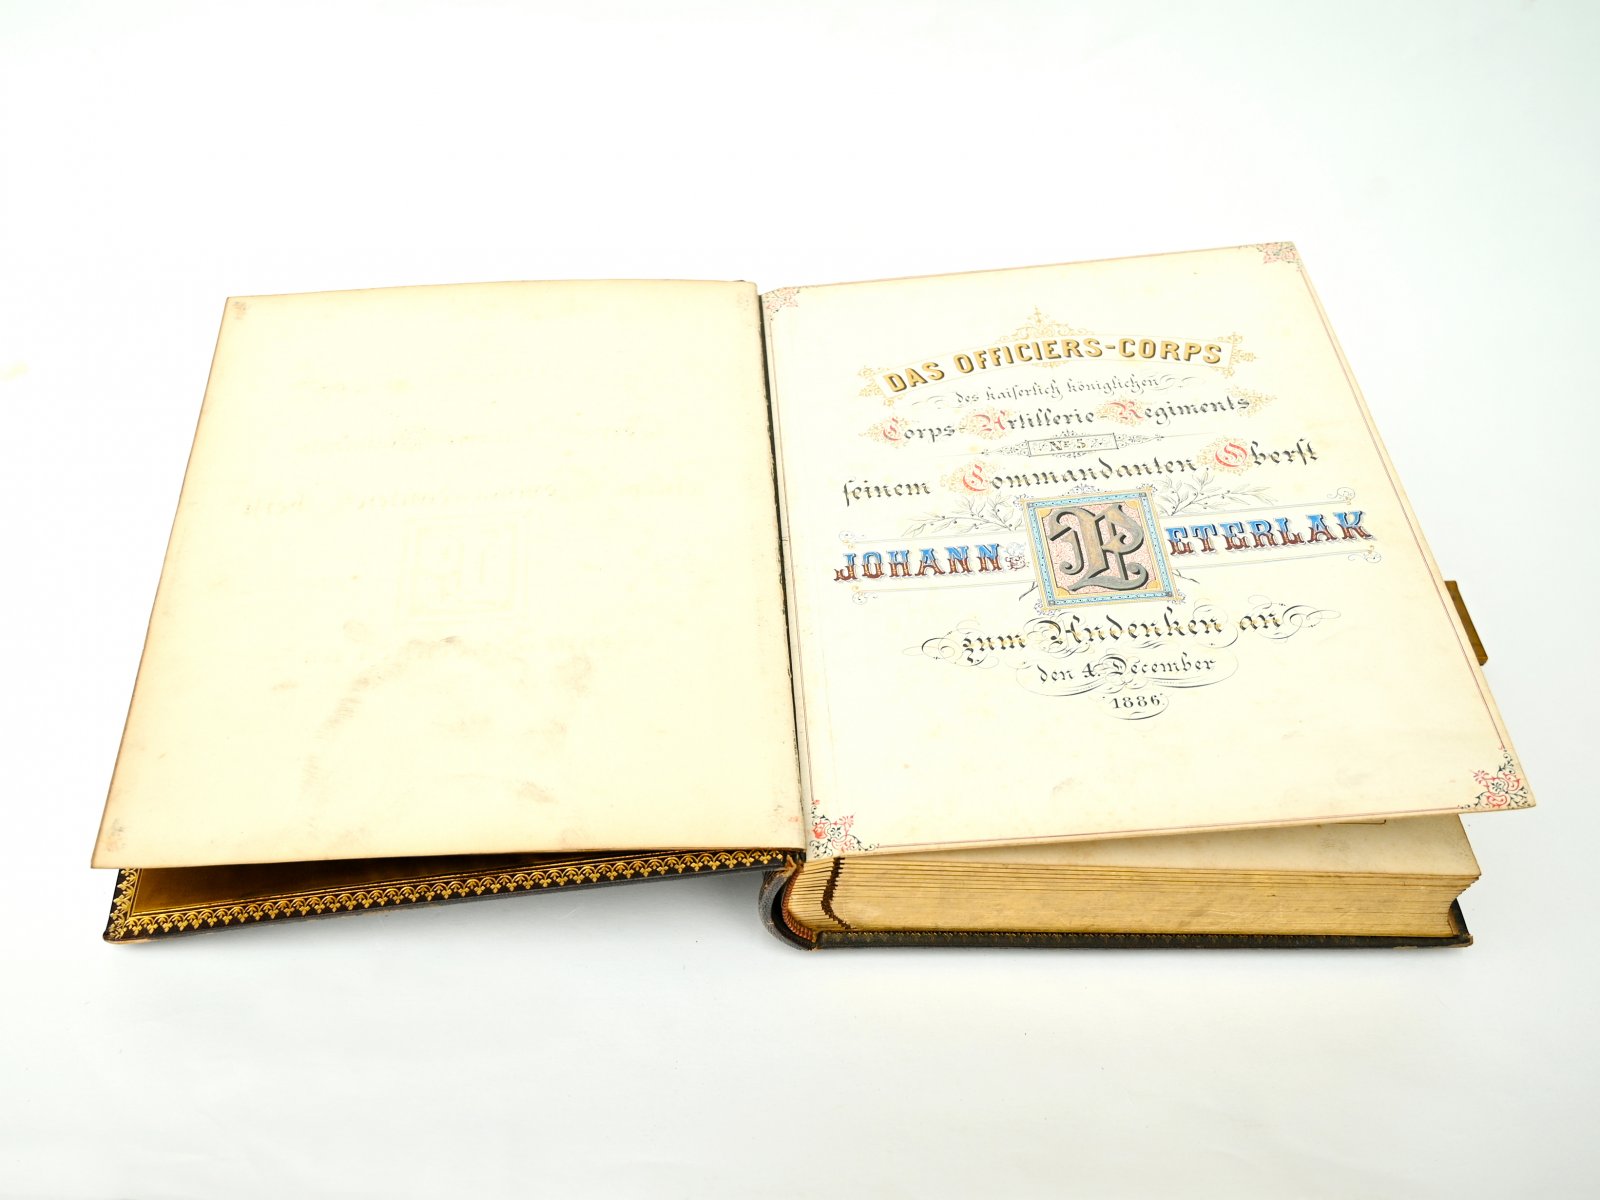 DAS OFFICIERS-CORPS
des kaiserlich königlichen
Corps-Artillerie-Regiments
Nr. 5.
seinem Commandanten, Oberst
JOHANN PETERLAK
zum Andenken an
den 4. December
1886.